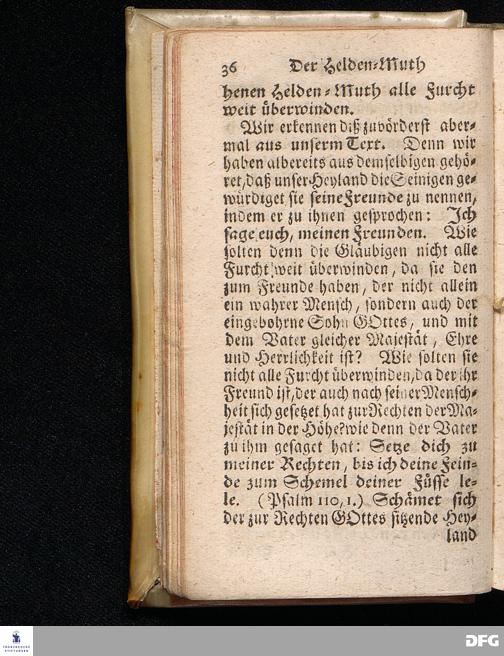 36 Der Helden-Muth
henen Helden-Muth alle Furcht
weit überwinden.
Wir erkennen diß zuvörderst aber-
mal aus unserm Text. Denn wir
haben albereits aus demselbigen gehö-
ret, daß unser Heyland die Seinigen ge-
würdiget sie seine Freunde zu nennen,
indem er zu ihnen gesprochen: Ich
sage euch, meinen Freunden. Wie
solten denn die Gläubigen nicht alle
Furcht weit überwinden, da sie den
zum Freunde haben, der nicht allein
ein wahrer Mensch, sondern auch der
eingebohrne Sohn GOttes, und mit
dem Vater gleicher Majestät, Ehre
und Herrlichkeit ist? Wie solten sie
nicht alle Furcht überwinden, da der ihr
Freund ist, der auch nach seiner Mensch-
heit sich gesetzet hat zur Rechten der Ma-
jestät in der Höhe? wie denn der Vater
zu ihm gesaget hat: Setze dich zu
meiner Rechten, bis ich deine Fein-
de zum Schemel deiner Füsse le-
le. (Psalm 110, 1.) Schämet sich
der zur Rechten GOttes sitzende Hey-
land
FRANCKESCHE
STIFTUNGEN
DFG